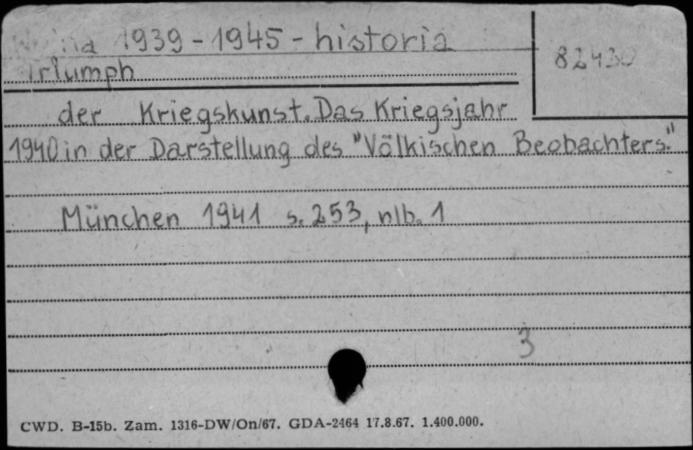 Wojna 1939-1945 - historia
82430
Triumph
der Kriegskunst. Das Kriegsjahr
1940 in der Darstellung des "Völkischen Beobachters."
München 1941 s. 253, nlb. 1
3
CWD. B-15b. Zam. 1316-DW/On/67. GDA-2464 17.8.67. 1.400.000.